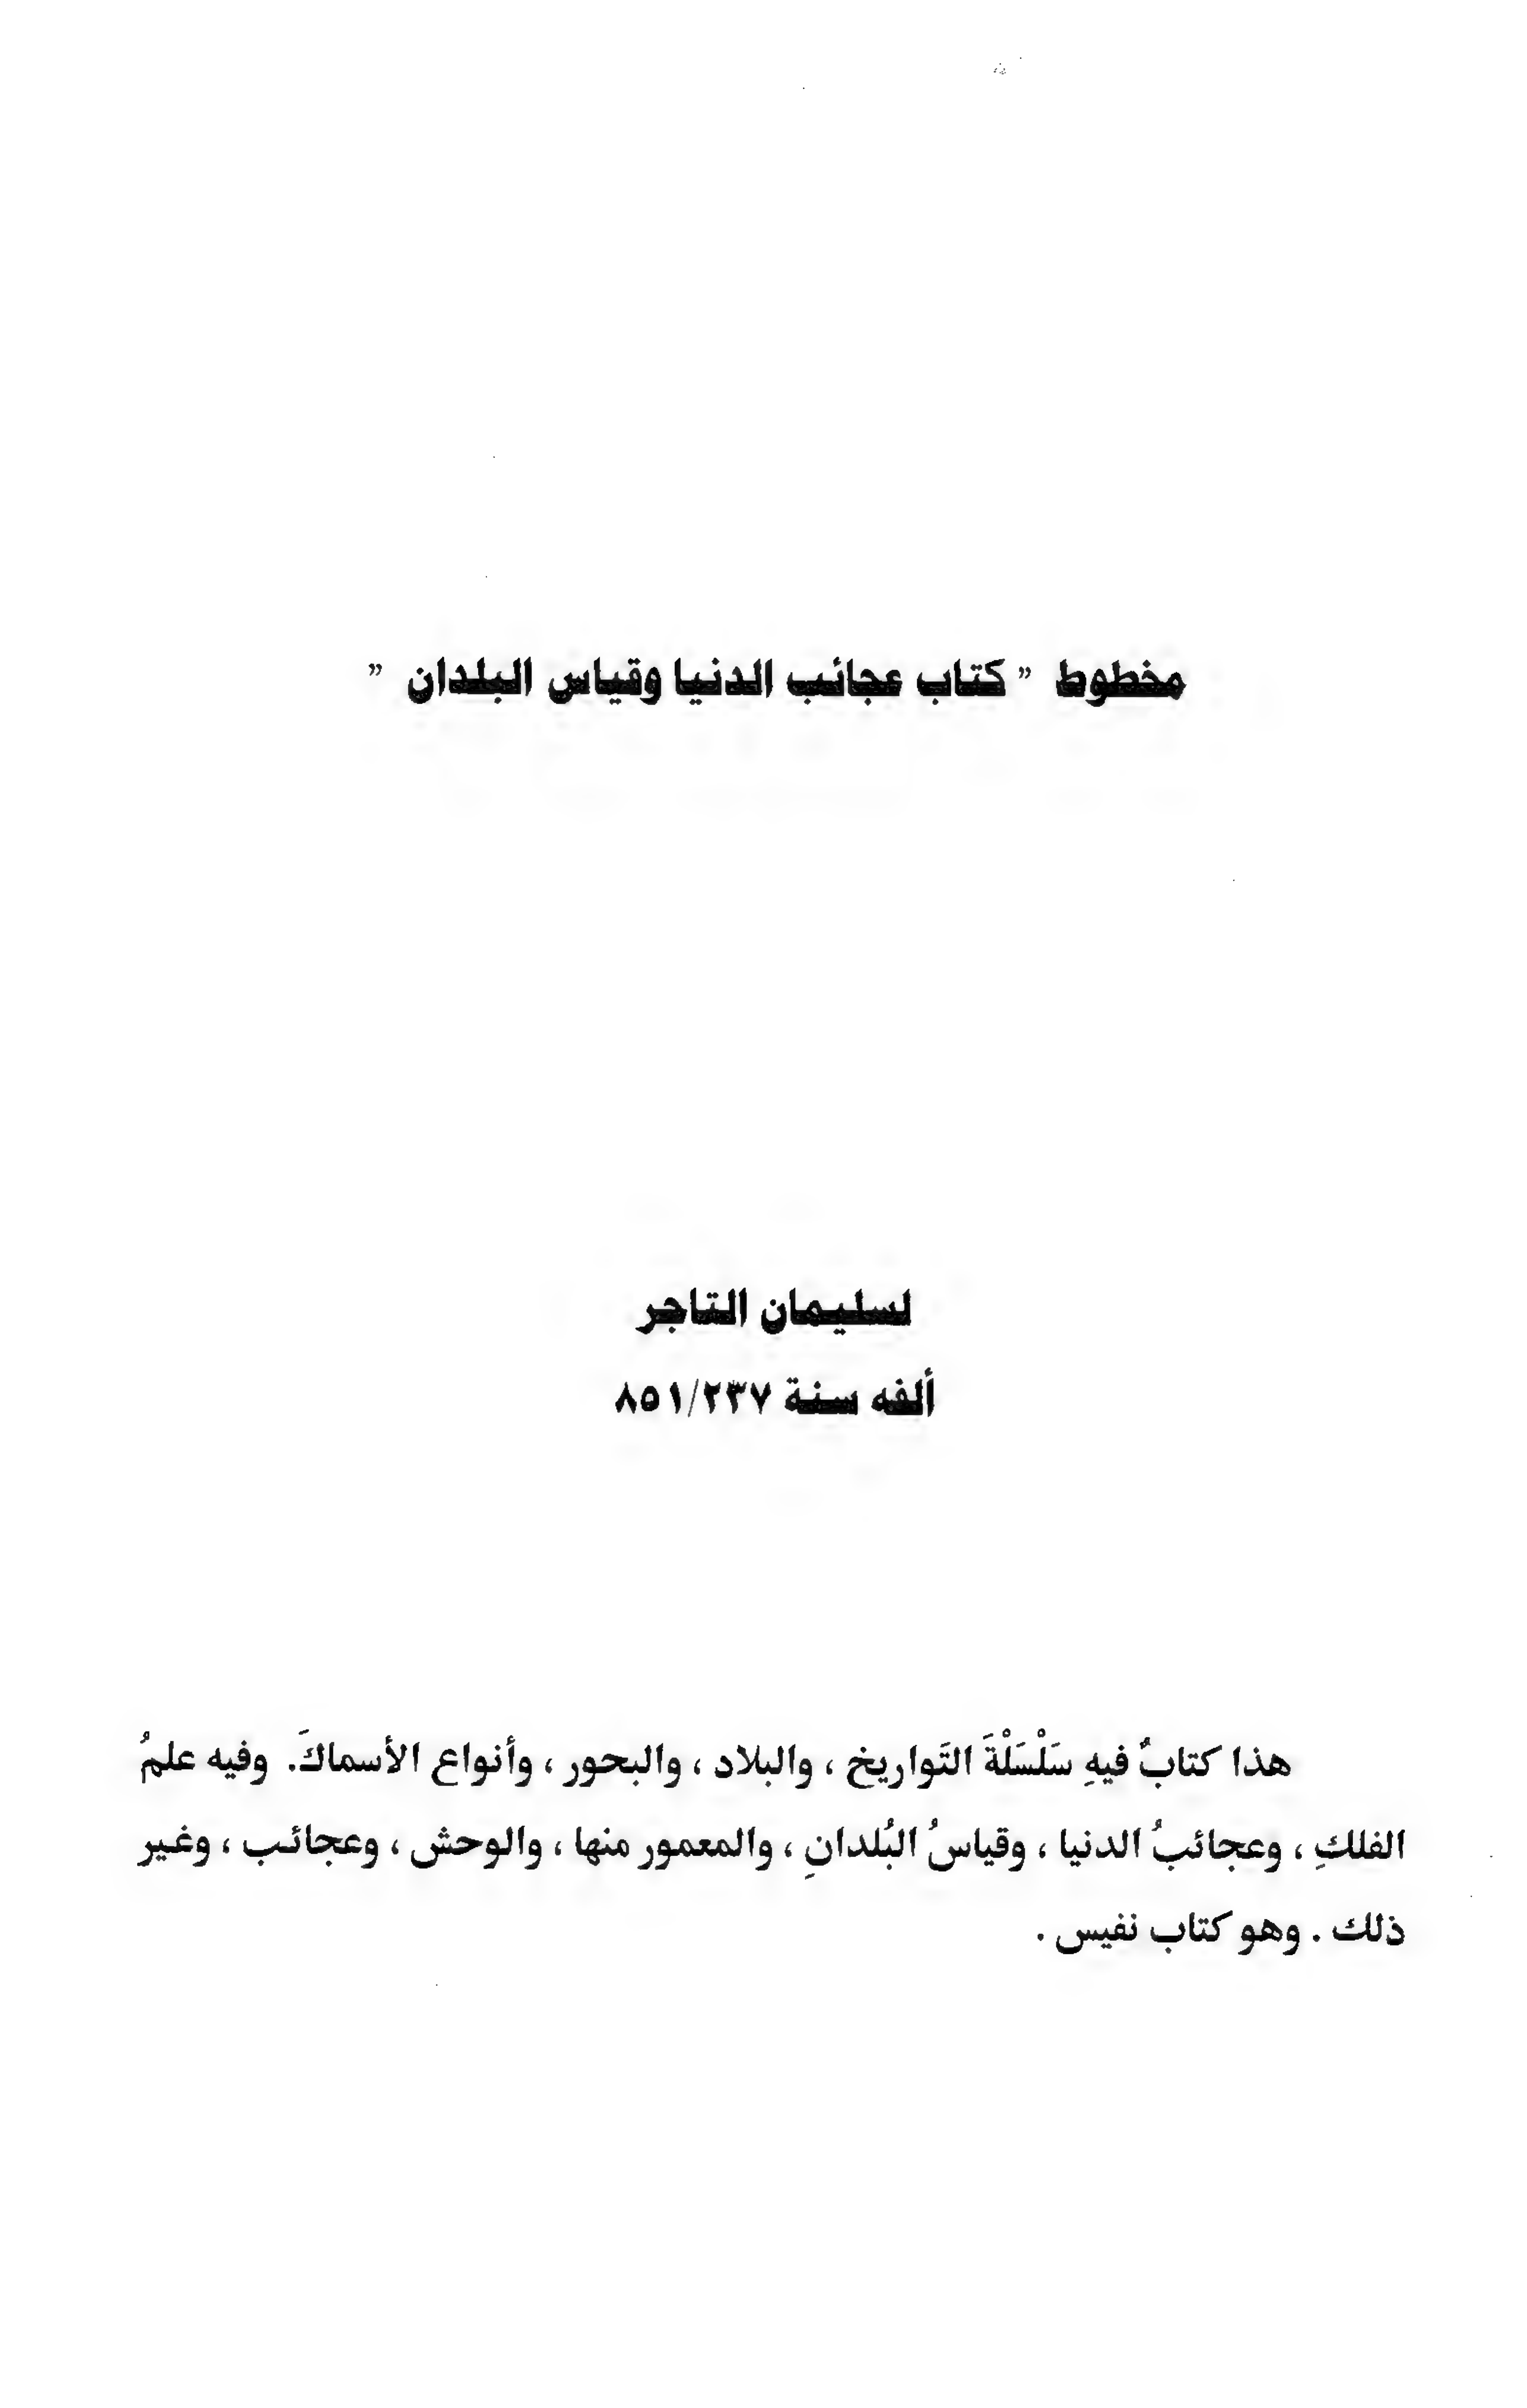 مخطوط " كتاب عجائب الدنيا وقياس البلدان "
لسليمان التاجر
ألفه سنة ٢٣٧/٨٥١
هذا كتابٌ فيهِ سَلْسَلْةَ التَواريخ ، والبلاد ، والبحور ، وأنواع الأسماكَ. وفيه علمُ
الفلكِ ، وعجائبُ الدنيا ، وقياسُ البُلدانِ ، والمعمور منها ، والوحش ، وعجائب ، وغير
ذلك . وهو كتاب نفيس .